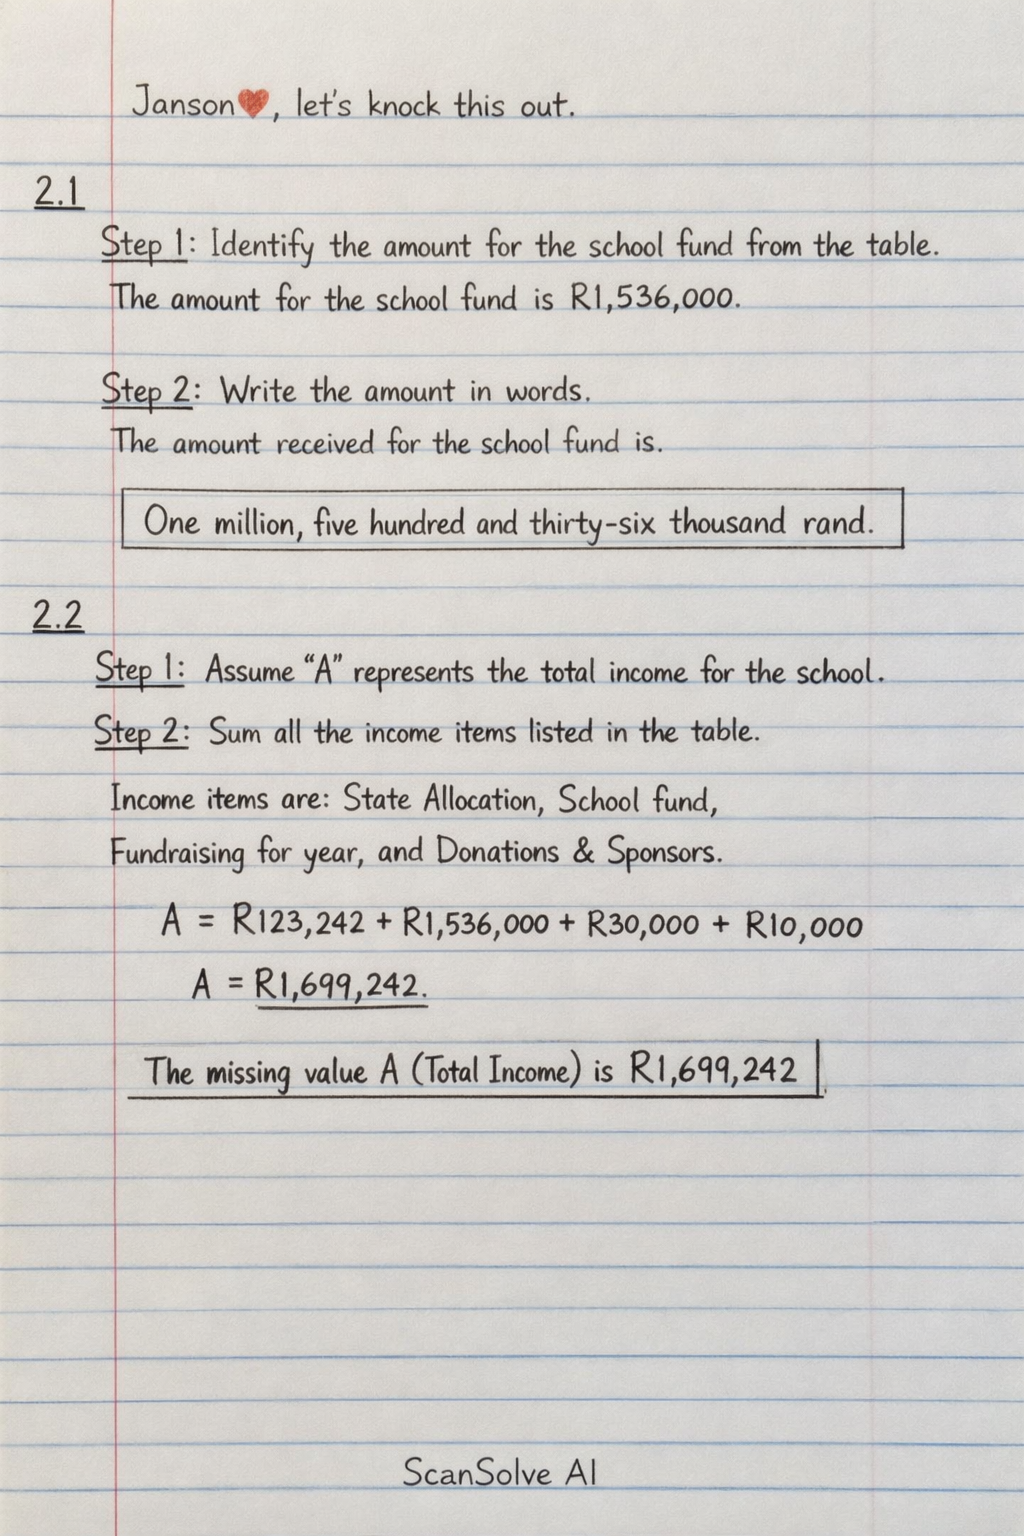 Janson❤️, let's knock this out.
2.1
Step 1: Identify the amount for the school fund from the table.
The amount for the school fund is R1,536,000.
Step 2: Write the amount in words.
The amount received for the school fund is.
One million, five hundred and thirty-six thousand rand.
2.2
Step 1: Assume “A” represents the total income for the school.
Step 2: Sum all the income items listed in the table.
Income items are: State Allocation, School fund,
Fundraising for year, and Donations & Sponsors.
A = R123,242 + R1,536,000 + R30,000 + R10,000
A = R1,699,242.
The missing value A (Total Income) is R1,699,242
ScanSolve AI